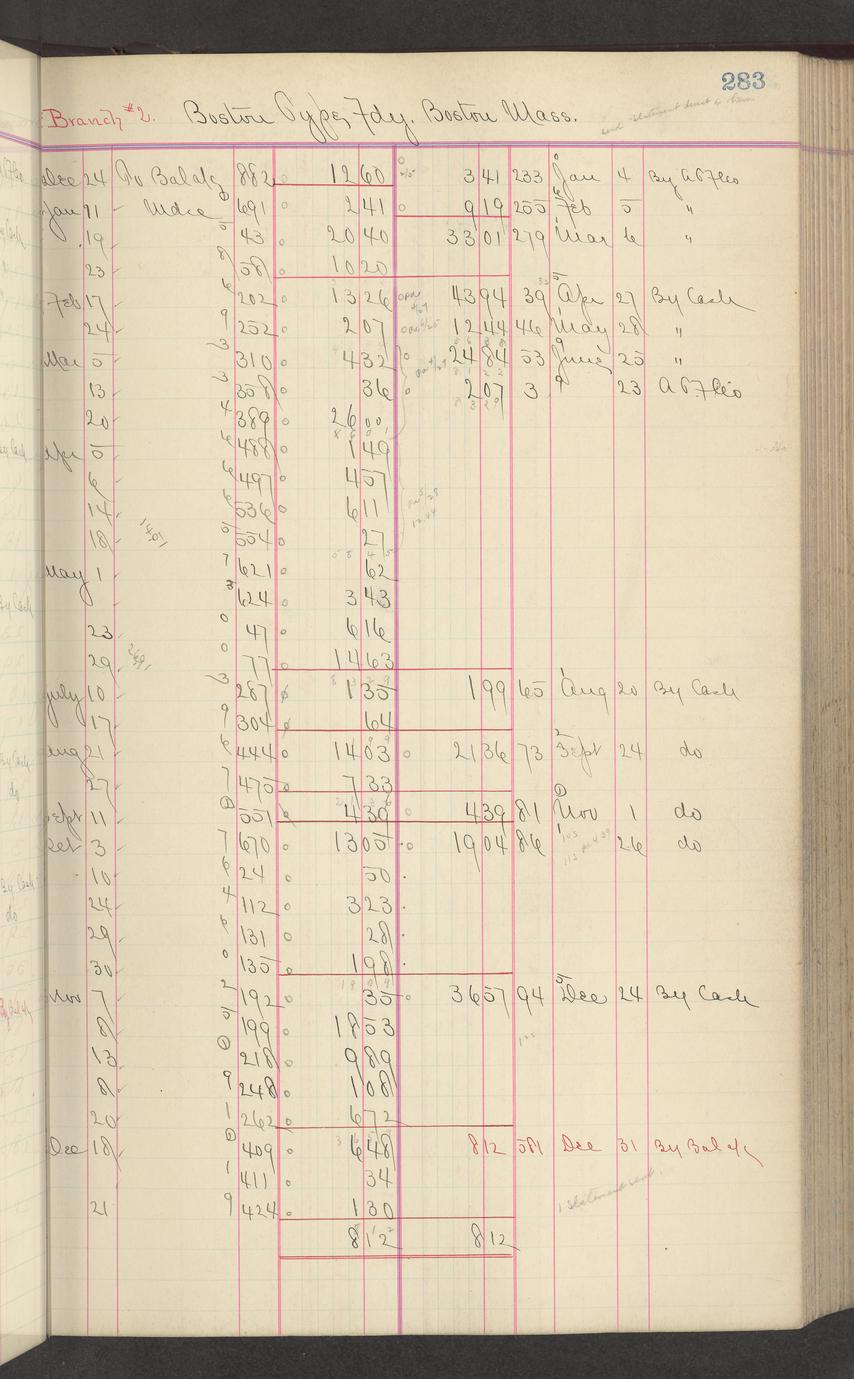 283
Branch #2. Boston Type Fdy. Boston Mass.
Dec 24 To Bal dg 882 12 60 3 41 233 Jan 4 By A T F Co
Jan 11 Mdse 691 2 41 9 19 255 Feb 5 "
19 43 20 40 33 01 279 Mar 6 "
23 58 10 20
Feb 17 202 13 26 43 94 39 Apr 27 By Cash
24 252 2 07 12 44 46 May 28 "
Mar 5 310 4 32 24 84 53 June 25 "
13 358 36 2 07 3 23 A T F Co
20 389 26 00
Apr 5 488 1 49
6 497 4 57
14 536 6 11
18 554 27
May 1 621 62
624 3 43
23 47 6 16
29 77 14 63
July 10 287 1 35 1 99 65 Aug 20 By Cash
17 304 64
Aug 21 444 14 03 21 36 73 Sept 24 do
27 475 7 33
Sept 11 551 4 39 4 39 81 Nov 1 do
Oct 3 670 13 05 19 04 86 26 do
10 24 50
24 112 3 23
29 131 28
30 135 1 98
Nov 7 192 35 36 57 94 Dec 24 By Cash
8 199 18 53
13 218 9 89
8 248 1 08
20 262 6 72
Dec 18 409 6 48 8 12 581 Dec 31 By Bal dg
411 34
21 424 1 30
1 Statement sent.
8 12 8 12